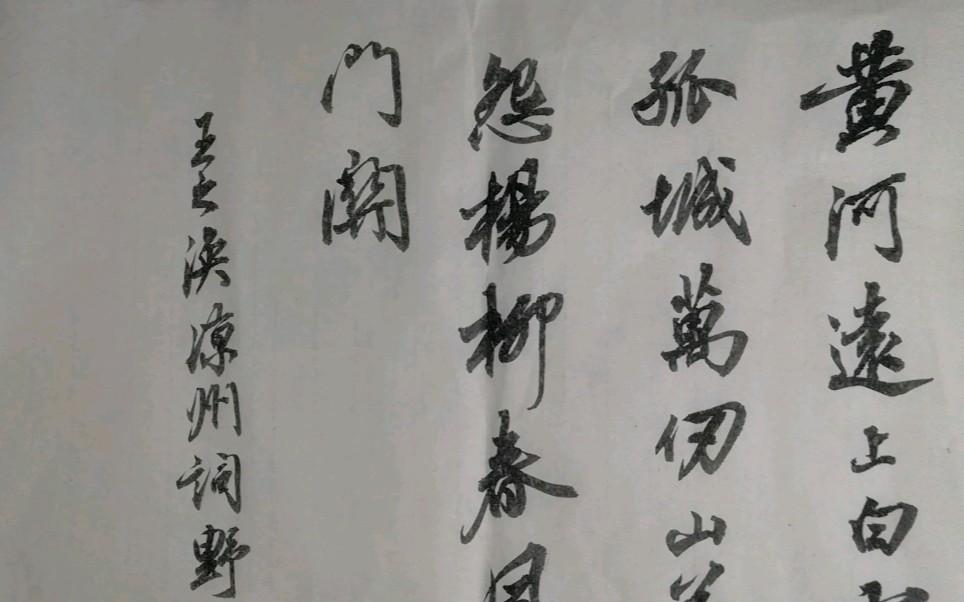 黄河遠上白
孤城萬仞山
怨楊柳春風
門關
王之渙涼州詞野